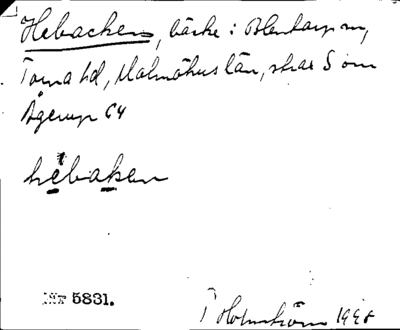 Hebacken, bäcke i Blentarp sn,
Torna hd, Malmöhus län, strax S om
Ågerup 64
hebaken
Nr 5831.
I Holmström 1948